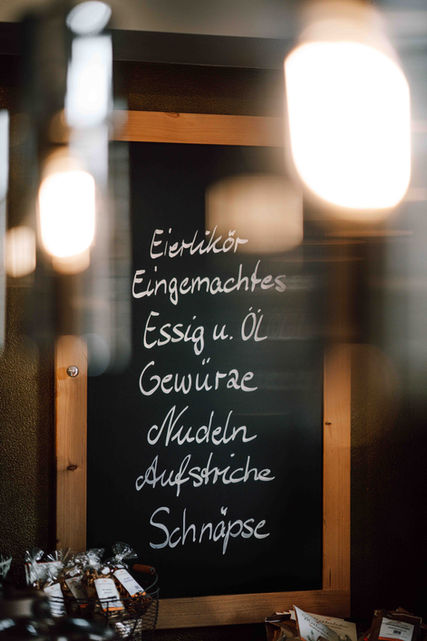 Eierlikör
Eingemachtes
Essig u. Öl
Gewürze
Nudeln
Aufstriche
Schnäpse